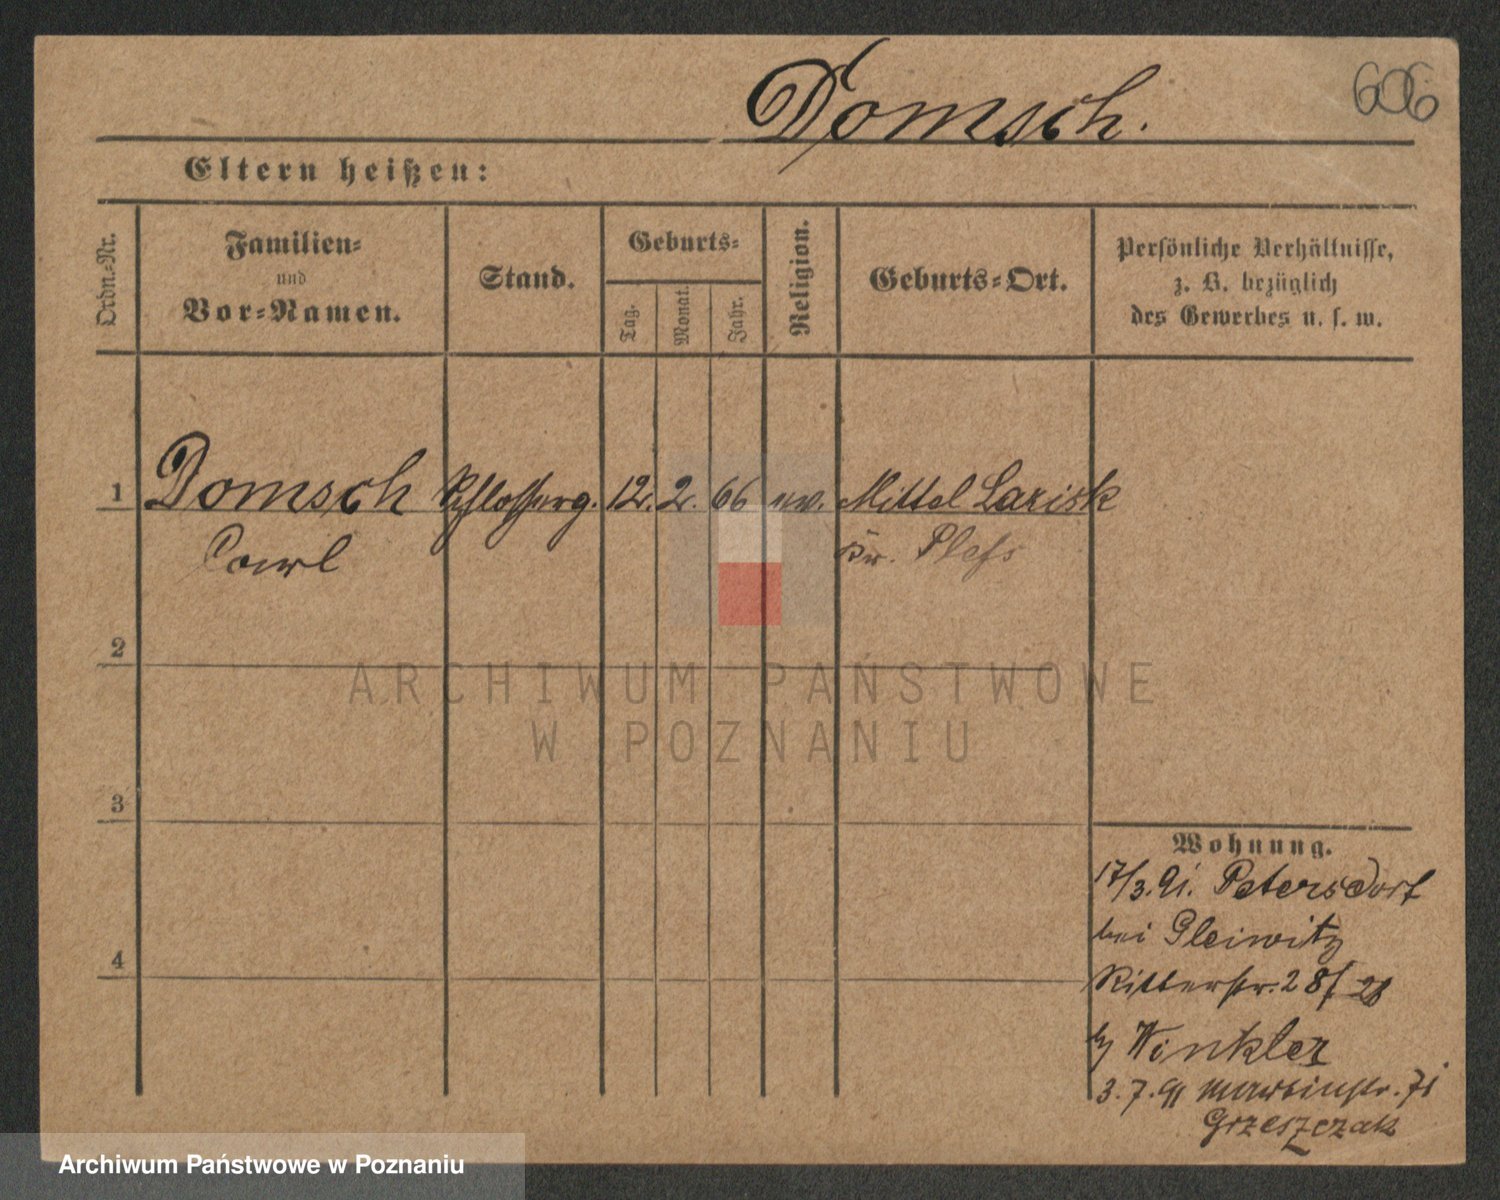 Domsch.
606
Eltern heißen:
Ordn.-Nr.
Familien-
und
Vor-Namen.
Stand.
Geburts-
Tag.
Monat.
Jahr.
Religion.
Geburts-Ort.
Persönliche Verhältnisse,
z. B. bezüglich
des Gewerbes u. s. w.
1 Domsch Schlosserg. 12. 2. 66 ev. Mittel Lazisk
Carl Kr. Pless
2
ARCHIWUM PAŃSTWOWE
W POZNANIU
3
Wohnung.
17/3. 91. Petersdorf
bei Gleiwitz
4
Ritterstr. 28/
b/ Winkler
3. 7. 91 Martinstr. 71
Grzeszczak
Archiwum Państwowe w Poznaniu